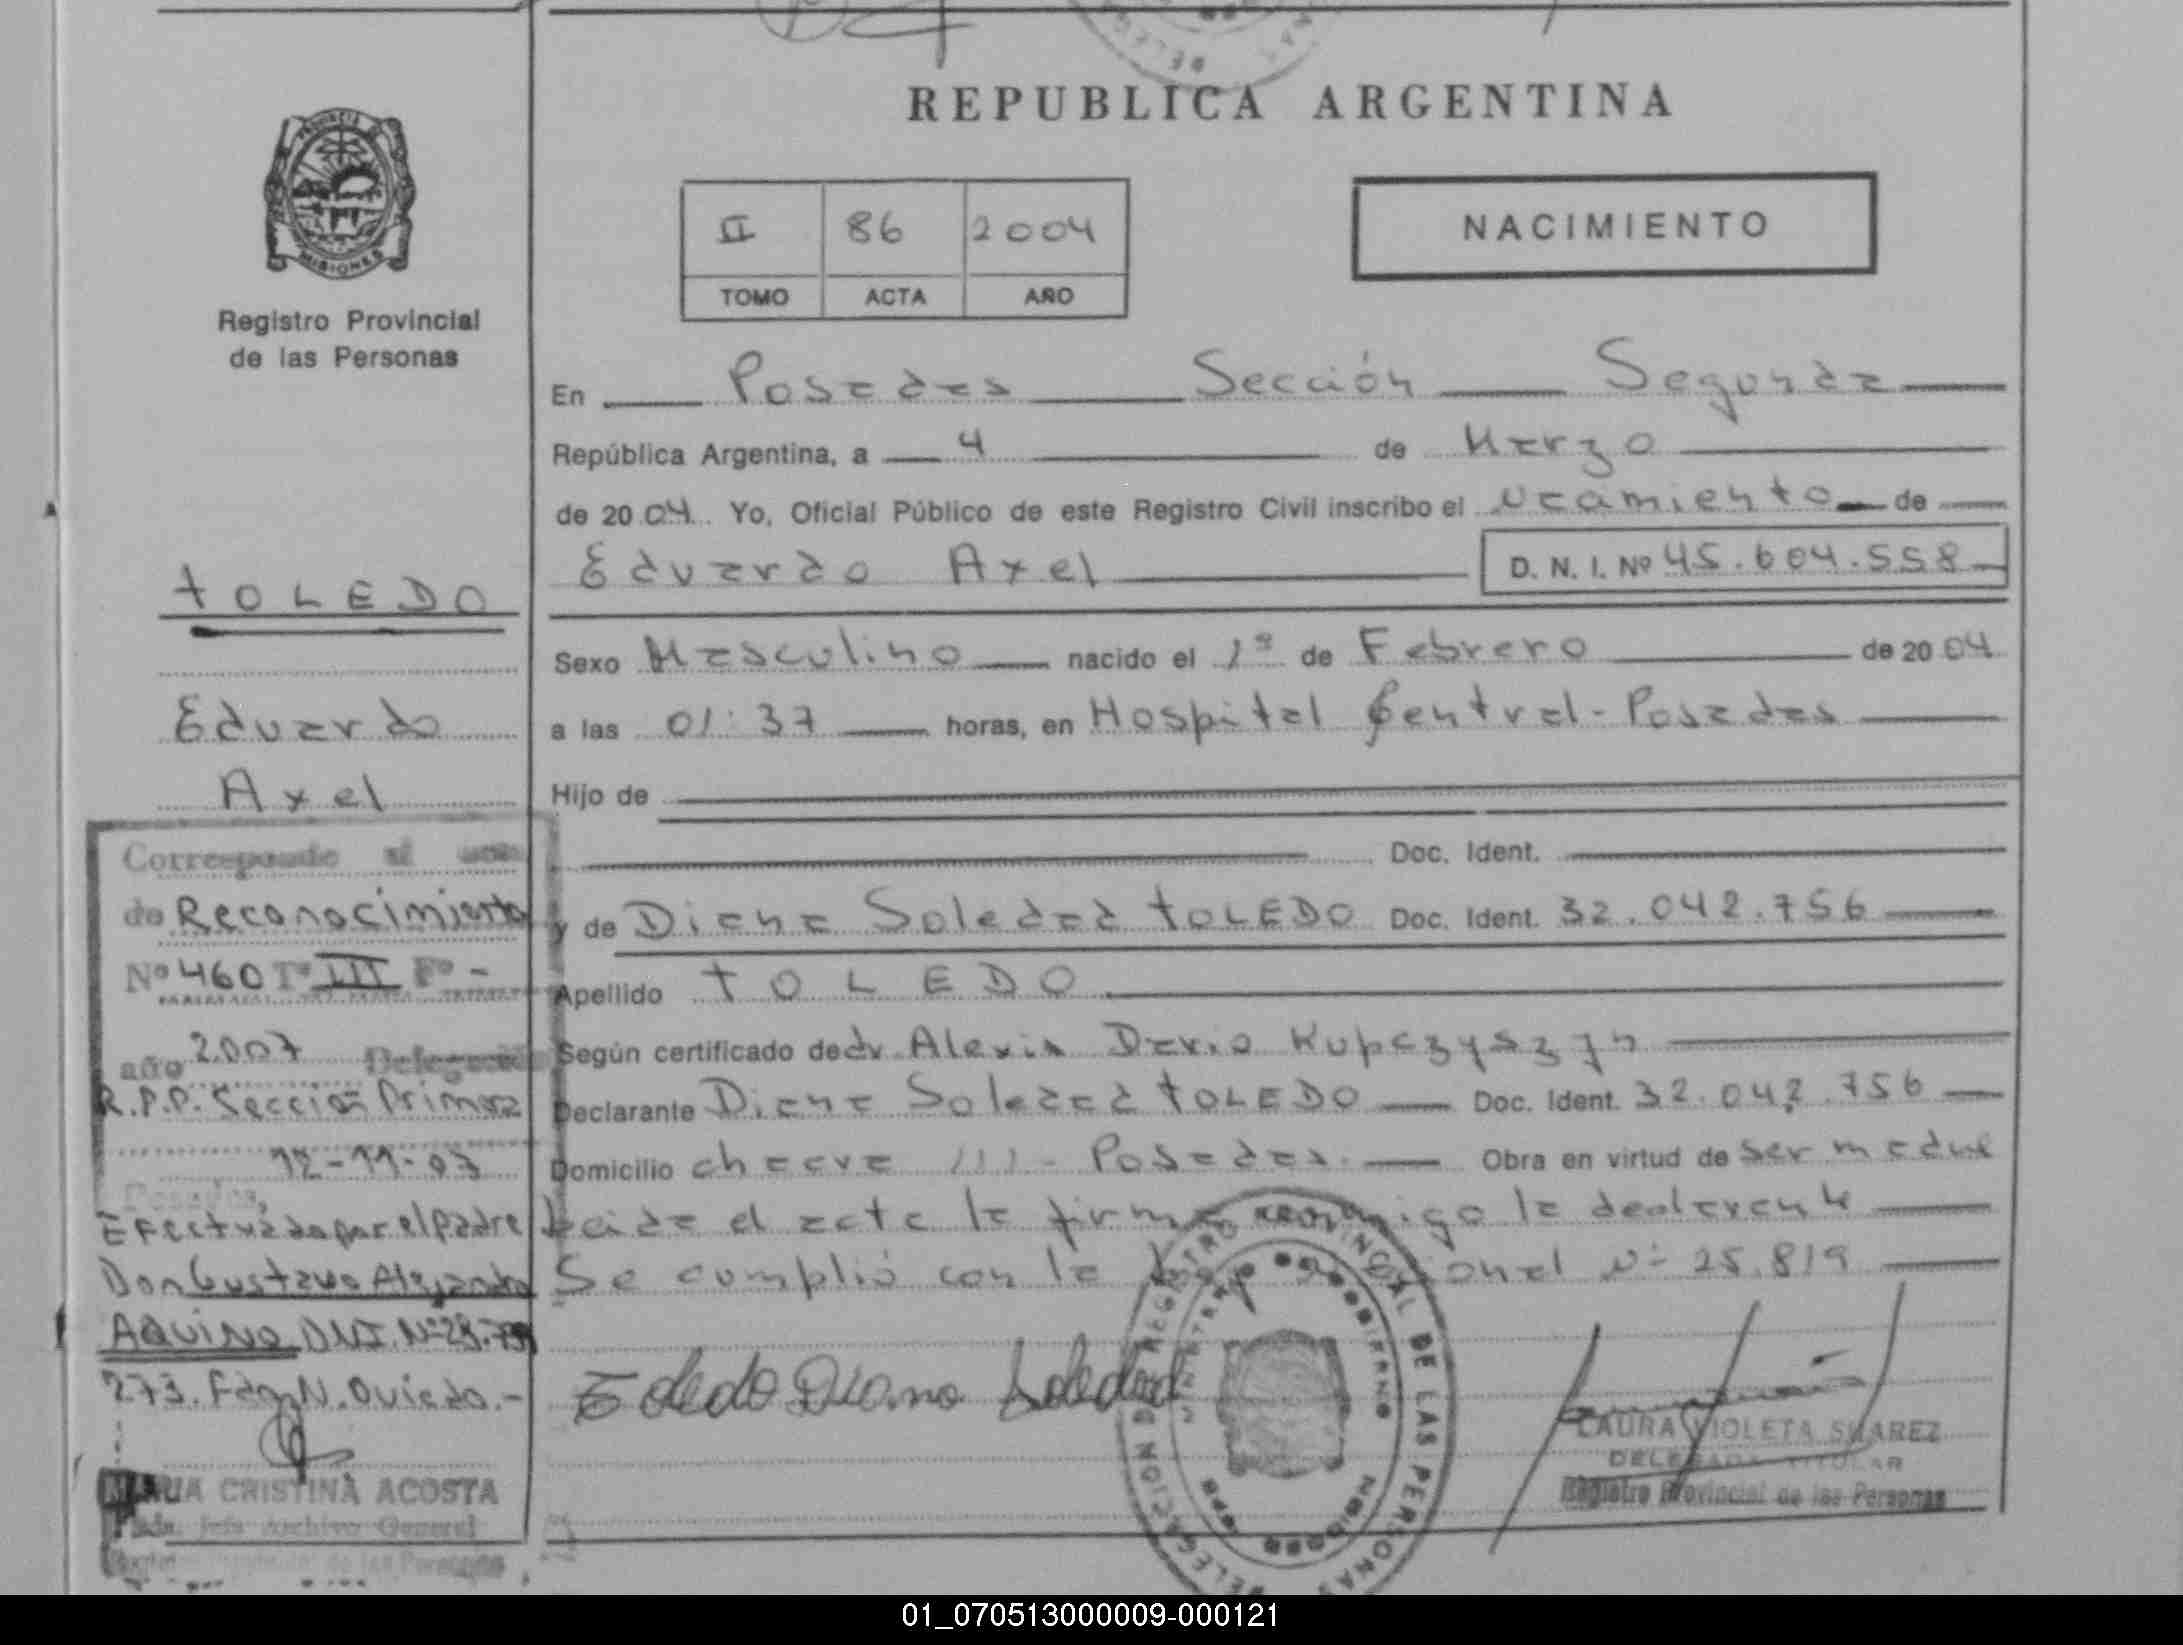 REPUBLICA ARGENTINA
PROVINCIA DE
MISIONES
Registro Provincial
de las Personas
II 86 2004
TOMO ACTA AÑO
NACIMIENTO
En Posadas Sección Segunda
República Argentina, a 4 de Marzo
de 2004 Yo, Oficial Público de este Registro Civil inscribo el nacimiento de
Eduardo Axel D. N. I. Nº 45.604.558
Sexo Masculino nacido el 1º de Febrero de 2004
a las 01:37 horas, en Hospital Central - Posadas
Hijo de
Doc. Ident.
y de Diana Soledad TOLEDO Doc. Ident. 32.042.756
Apellido TOLEDO
Según certificado de dr Alexis Dario
Declarante Diana Soledad TOLEDO Doc. Ident. 32.042.756
Domicilio Posadas. Obra en virtud de ser madre
Leida el acta la firma conmigo la declarante
Se cumplió con la Ley Nº 25.819
Toledo Diana Soledad
LAURA VIOLETA SUAREZ
DELEGADA TITULAR
Registro Provincial de las Personas
DELEGACION REGISTRO PROVINCIAL DE LAS PERSONAS
TOLEDO
Eduardo
Axel
Corresponde al
de Reconocimiento
Nº 460 Tº III Fº -
año 2007 Delegación
R.P.P. Sección Primera
12-11-07
Posadas,
Efectuada por el padre
Don Gustavo Alejandro
AQUINO DNI. Nº 28.799
273. Fdo N. Oviedo.-
MARIA CRISTINA ACOSTA
Jefe Archivo General
de las Personas
01_070513000009-000121